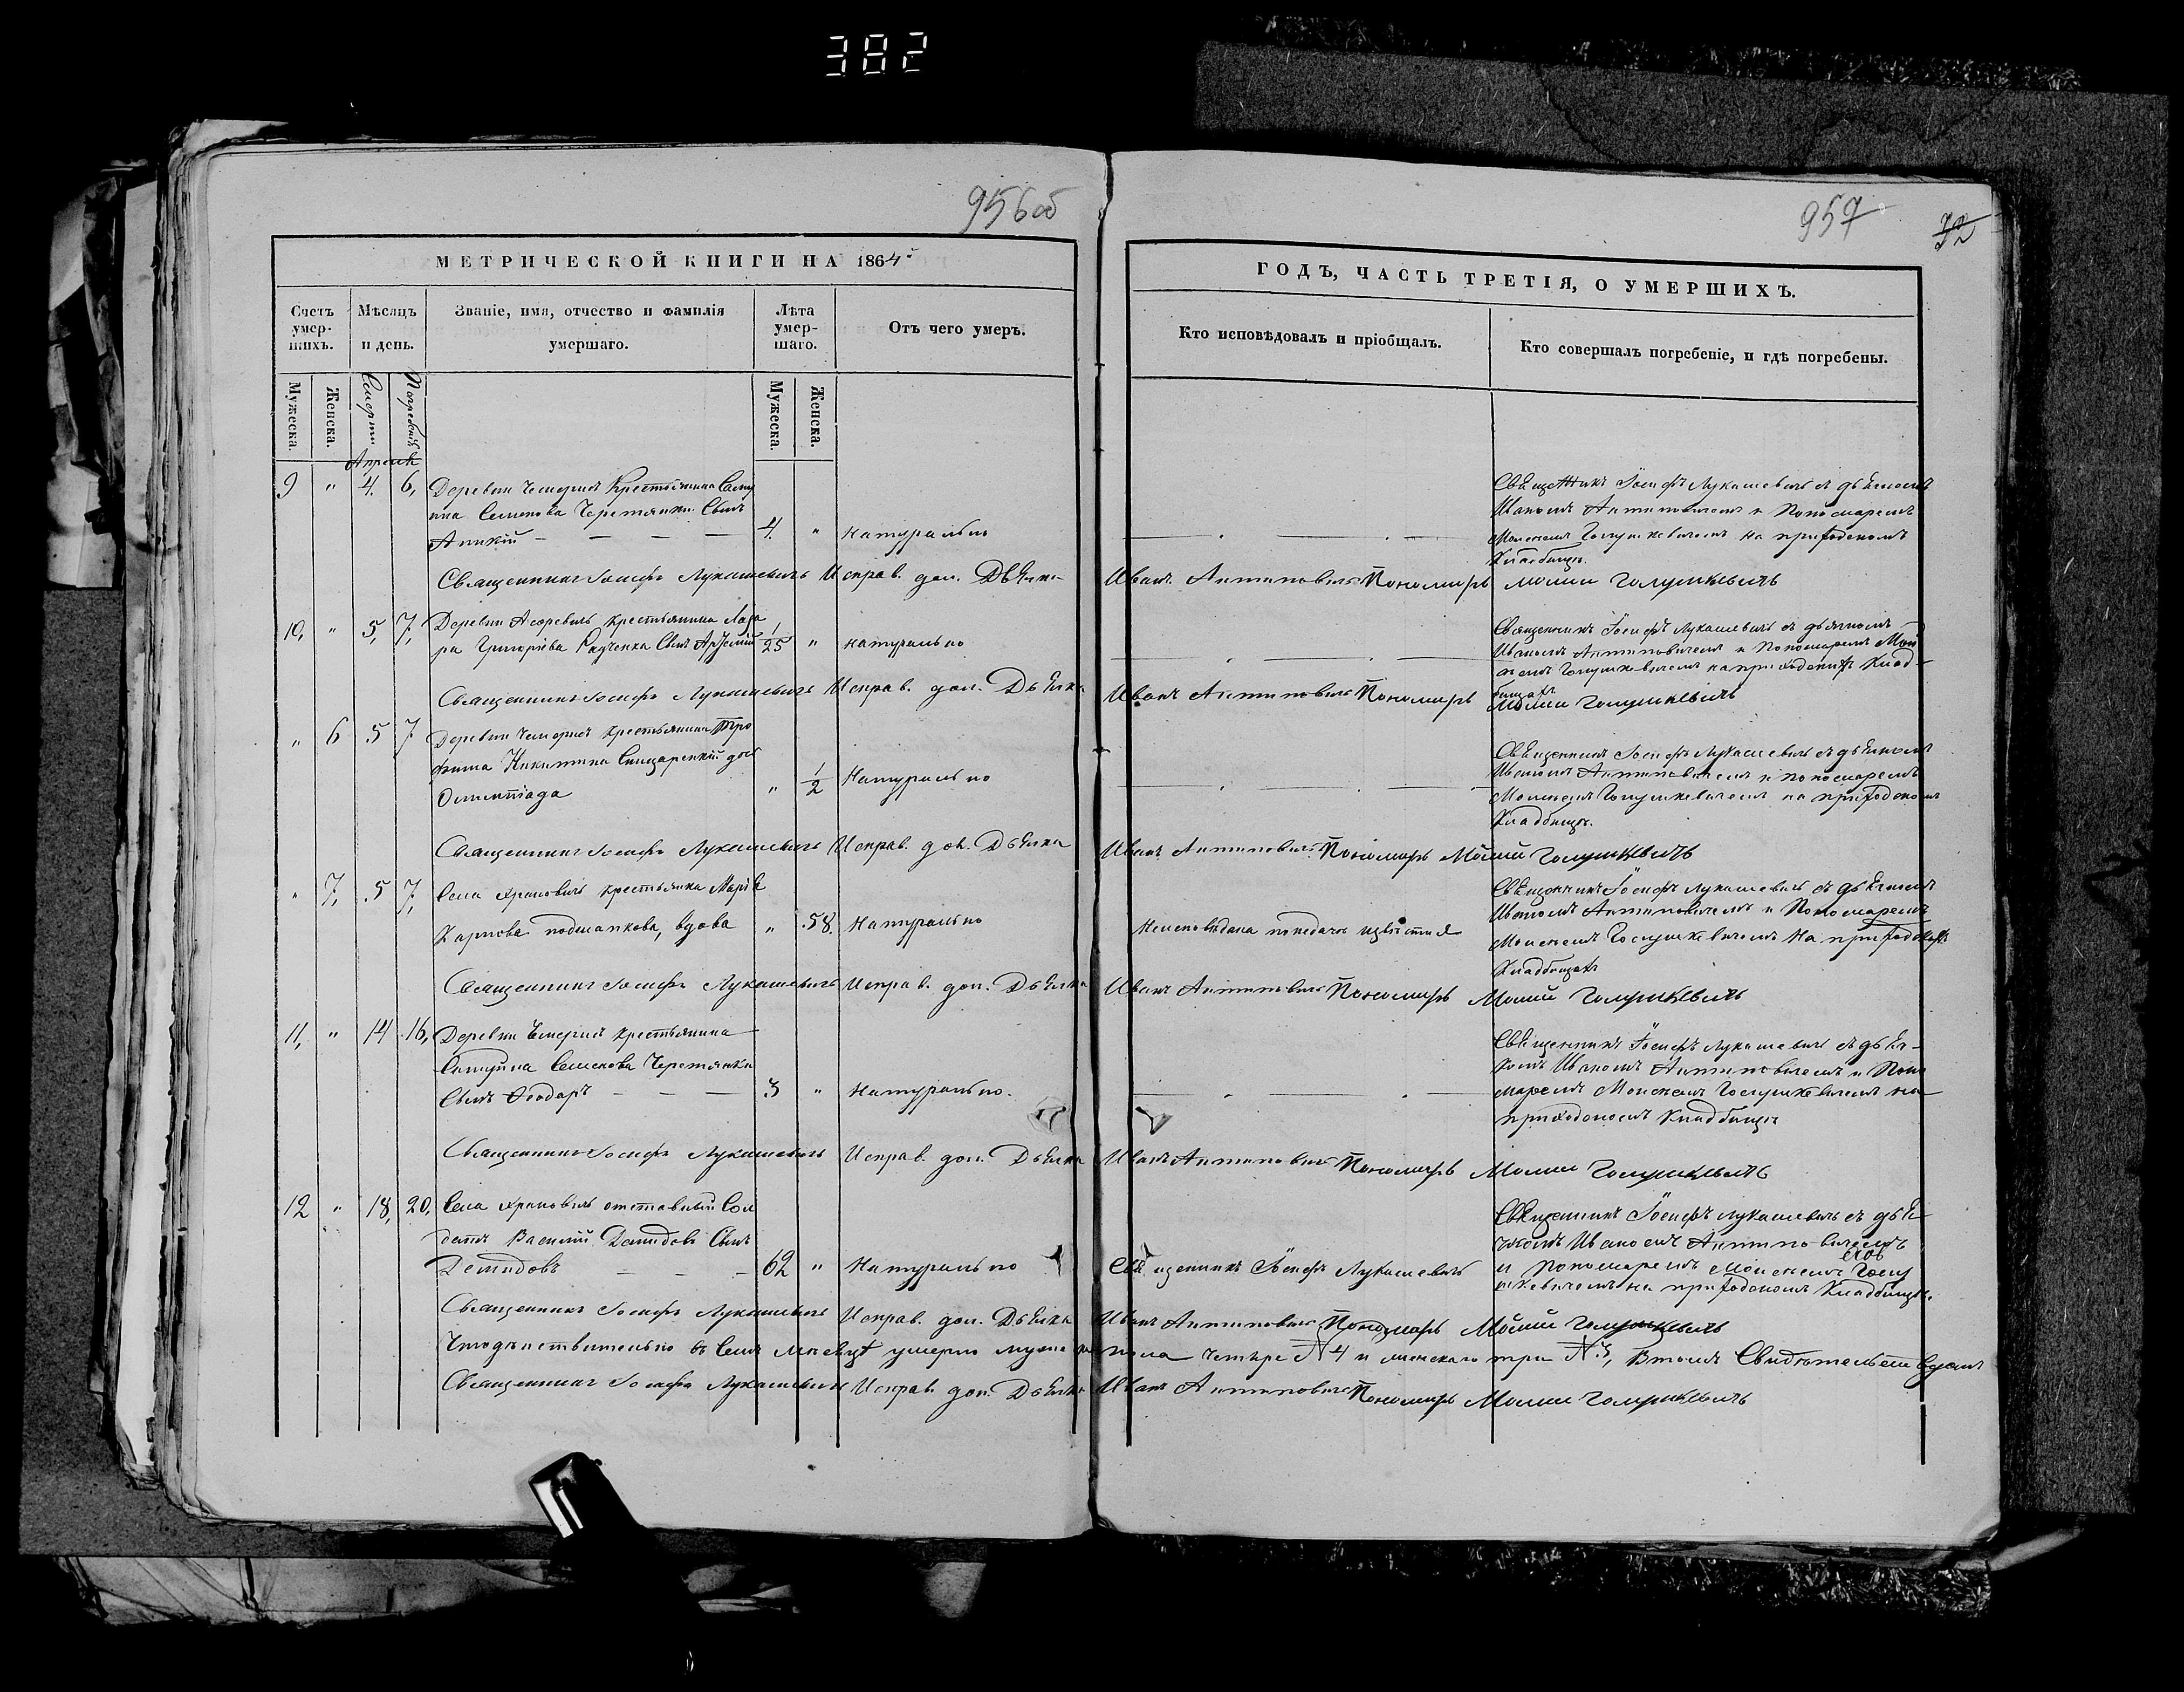 382
956об
957
72
МЕТРИЧЕСКОЙ КНИГИ НА 1864й
ГОДЪ, ЧАСТЬ ТРЕТІЯ, О УМЕРШИХЪ.
Счетъ умер-шихъ.
Мѣсяцъ и день.
Званіе, имя, отчество и фамилія умершаго.
Лѣта умер-шаго.
Отъ чего умеръ.
Кто исповѣдовалъ и пріобщалъ.
Кто совершалъ погребеніе, и гдѣ погребены.
Мужеска.
Женска.
Смерти
Погребенія
Мужеска.
Женска.
Апрель
9 " 4. 6, Деревни Чемерня Крестьянина
Семенова Черетянки Сынъ
4. " Натурально
Священникъ Іосифъ Лукашевичъ съ дьячкомъ
Иваномъ Антиповичемъ и Пономаремъ
Моисеемъ Голушкевичемъ на приходскомъ
Кладбищѣ.
Священникъ Іосифъ Лукашевичъ Исправ. дол. Дьячка Иванъ Антиповичъ Пономарь Моисей Голушкевичъ
10, " 5, 7, Деревни крестьянина Лаза
ра Григорьева Радченка Сынъ 1/25 " натурально
Священникъ Іосифъ Лукашевичъ съ дьячкомъ
Иваномъ Антиповичемъ и Пономаремъ Мои
сеемъ Голушкевичемъ на приходскихъ Клад-
бищахъ
Священникъ Іосифъ Лукашевичъ Исправ. дол. Дьячка Иванъ Антиповичъ Пономарь Моисей Голушкевичъ
" 6 5 7 Деревни Чемерня крестьянина Тро
фима Никитина дочь
Олимпіада " 1/2 Натурально
Священникъ Іосифъ Лукашевичъ съ дьячкомъ
Иваномъ Антиповичемъ и пономаремъ
Моисеемъ Голушкевичемъ на приходскомъ
Кладбищѣ.
Священникъ Іосифъ Лукашевичъ Исправ. дол. Дьячка Иванъ Антиповичъ Пономарь Моисей Голушкевичъ
" 7, 5 7, Села крестьянка Марія
Карпова вдова " 58. Натурально
Неисповѣдана
Священникъ Іосифъ Лукашевичъ съ дьячкомъ
Иваномъ Антиповичемъ и Пономаремъ
Моисеемъ Голушкевичемъ На приходскихъ
Кладбищахъ
Священникъ Іосифъ Лукашевичъ Исправ. дол. Дьячка Иванъ Антиповичъ Пономарь Моисей Голушкевичъ
11, " 14 16, Деревни Чемерня крестьянина
Семенова Черетянки
Сынъ Ѳеодоръ 3 " Натурально.
Священникъ Іосифъ Лукашевичъ съ дьяч-
комъ Иваномъ Антиповичемъ и Поно
маремъ Моисеемъ Голушкевичемъ на
приходскомъ Кладбищѣ
Священникъ Іосифъ Лукашевичъ Исправ. дол. Дьячка Иванъ Антиповичъ Пономарь Моисей Голушкевичъ
12 " 18, 20, Села отставный Сол
датъ Василій Демидовъ Сынъ
Демидовъ 62 " Натурально
Священникъ Іосифъ Лукашевичъ
Священникъ Іосифъ Лукашевичъ съ дья
чкомъ Иваномъ Антиповичемъ
и пономаремъ Моисеемъ Голу
шкевичемъ на приходскомъ Кладбищѣ.
Священникъ Іосифъ Лукашевичъ Исправ. дол. Дьячка Иванъ Антиповичъ Пономарь Моисей Голушкевичъ
Что дѣйствительно въ семъ мѣсяцѣ умерло мужеска пола четыре № 4 и женскаго три № 3, Втомъ Свидѣтельствуемъ
Священникъ Іосифъ Лукашевичъ Исправ. дол. Дьячка Иванъ Антиповичъ Пономарь Моисей Голушкевичъ